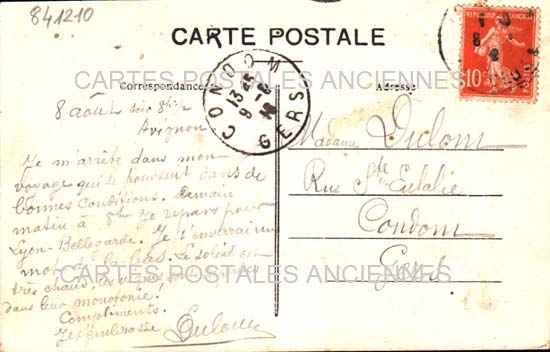 841210
CARTE POSTALE
RÉPUBLIQUE FRANÇAISE
10c
POSTES
CARTES POSTALES ANCIENNES
Correspondance
Adresse
CONDOM
13 45
9 - 8
GERS
8 août soir 8h
Avignon
Je m'arrête dans mon
voyage qui se poursuit dans de
bonnes conditions. Demain
matin à 8h je repars pour
Lyon-Bellegarde. Je t'enverrai un
mot de là-bas. Le soleil est
très chaud, les
dans leur monotonie.
Compliments.
Je t'embrasse
Dulom
Madame Dulom
Rue Ste Eulalie
Condom
Gers
CARTES POSTALES ANCIENNES